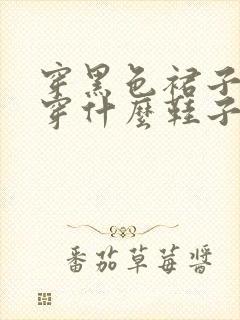 穿黑色裙子
穿什麼鞋子
番茄草莓醬